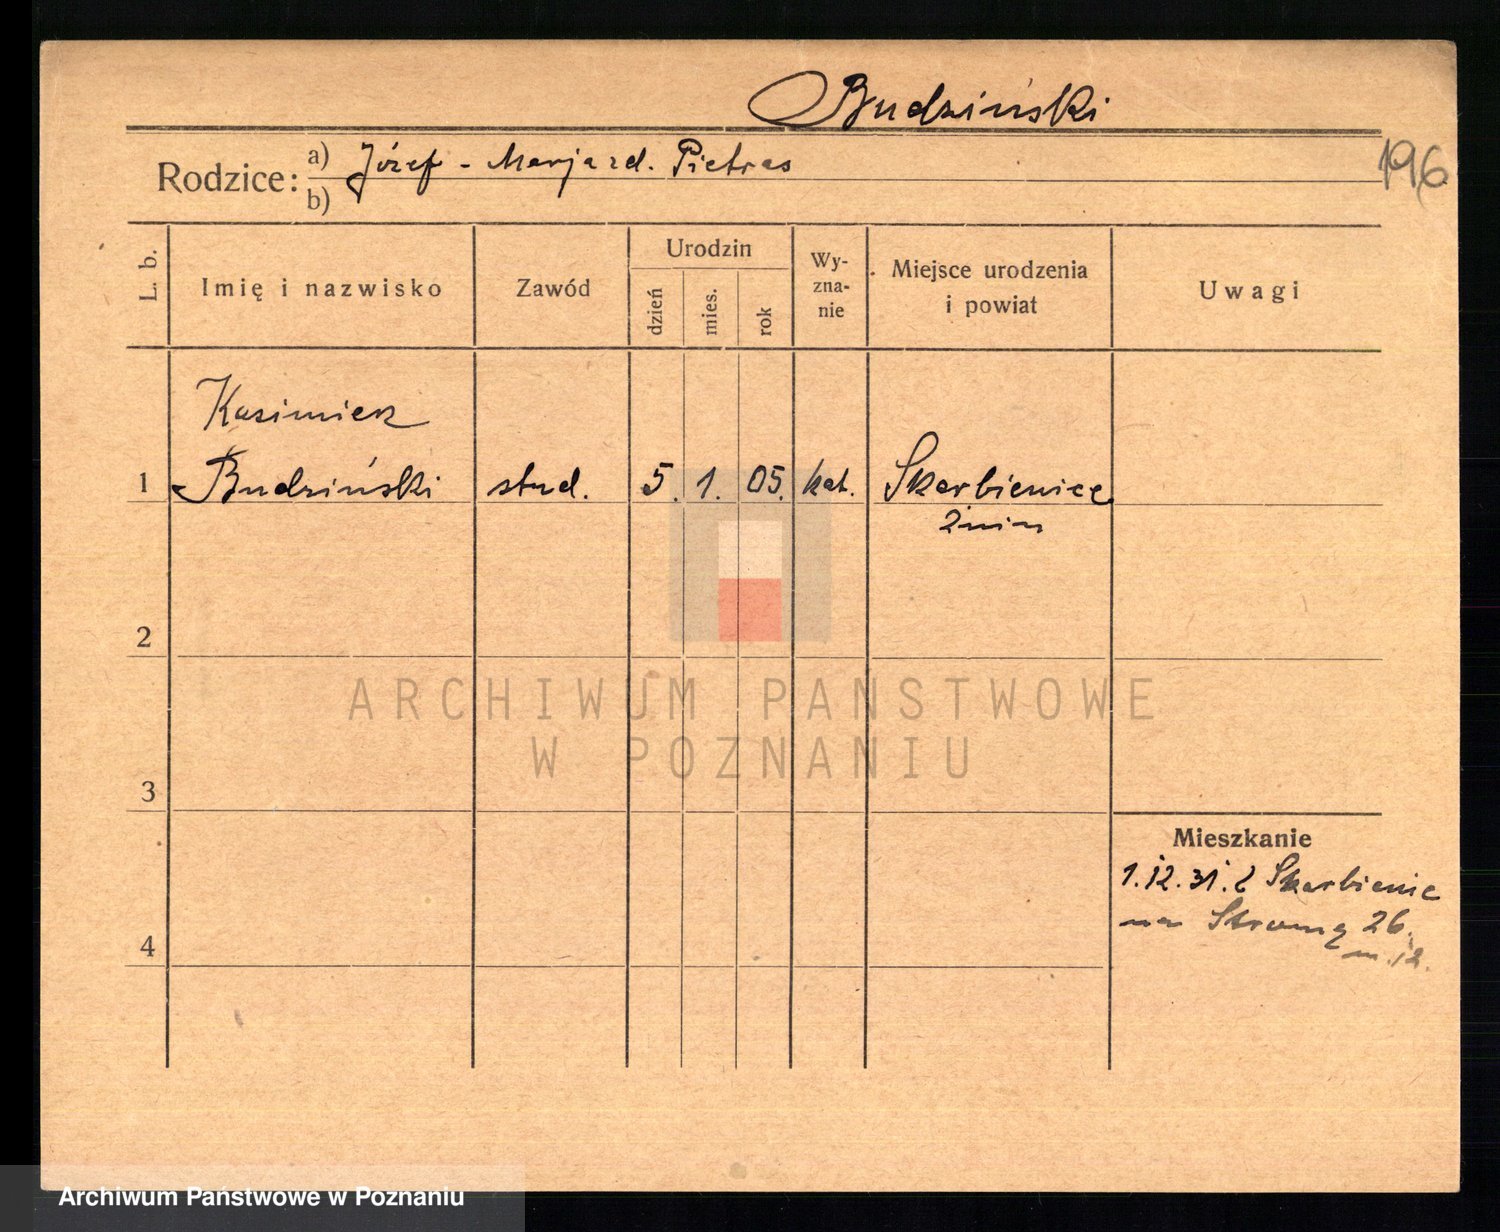 Budziński
Rodzice: a) Józef - Marja zd. Pietras
b)
196
L. b.
Imię i nazwisko
Zawód
Urodzin
dzień
mies.
rok
Wy-
zna-
nie
Miejsce urodzenia
i powiat
Uwagi
Kazimierz
1 Budziński stud. 5. 1. 05. kat. Skarbienice
Żnin
2
ARCHIWUM PANSTWOWE
W POZNANIU
3
Mieszkanie
1.12.31. z Skarbienic
na Stromą 26.
m. 12.
4
Archiwum Państwowe w Poznaniu